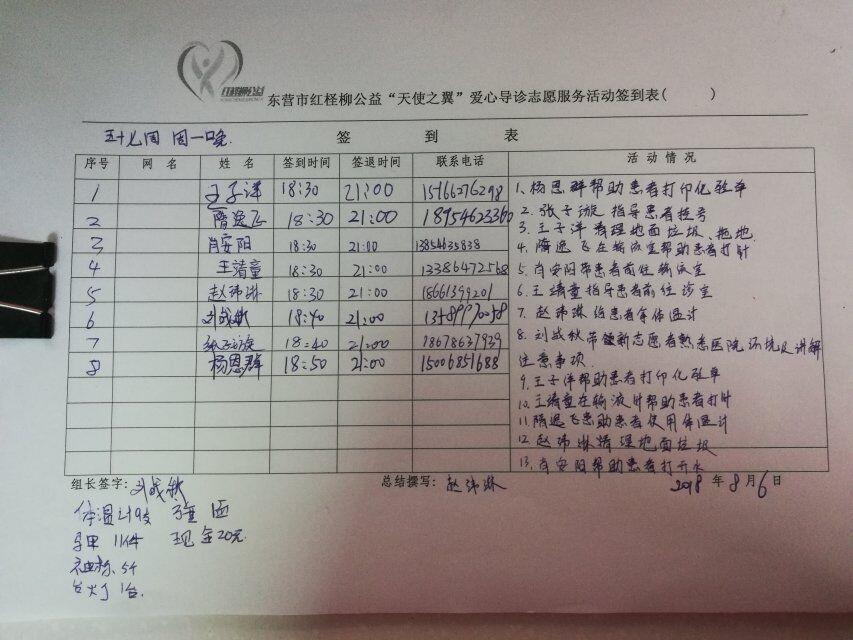 红柽柳公益
东营市红柽柳公益“天使之翼”爱心导诊志愿服务活动签到表( )
五十七周 周一晚
签 到 表
序号 网 名 姓 名 签到时间 签退时间 联系电话 活 动 情 况
1 王子洋 18:30 21:00 15166276298
2 隋逸飞 18:30 21:00 18954623360
3 肖安阳 18:30 21:00 13854635838
4 王靖童 18:30 21:00 13386472568
5 赵玮琳 18:30 21:00 18661399201
6 刘战秋 18:40 21:00
7 张子漩 18:40 21:00 18678637939
8 杨恩群 18:50 21:00 15006851688
1、杨恩群帮助患者打印化验单
2、张子漩指导患者挂号
3、王子洋清理地面垃圾、拖地
4、隋逸飞在输液室帮助患者打针
5、肖安阳带患者前往输液室
6、王靖童指导患者前往诊室
7、赵玮琳给患者拿体温计
8、刘战秋带领新志愿者熟悉医院环境及讲解
注意事项.
9、王子洋帮助患者打印化验单
10、王靖童在输液时帮助患者打针
11、隋逸飞帮助患者使用体温计
12、赵玮琳清理地面垃圾
13、肖安阳帮助患者打开水
组长签字: 刘战秋 总结撰写: 赵玮琳 2018 年 8 月 6 日
体温计9支
马甲 11件 现金20元
袖标 54
台灯 1台.